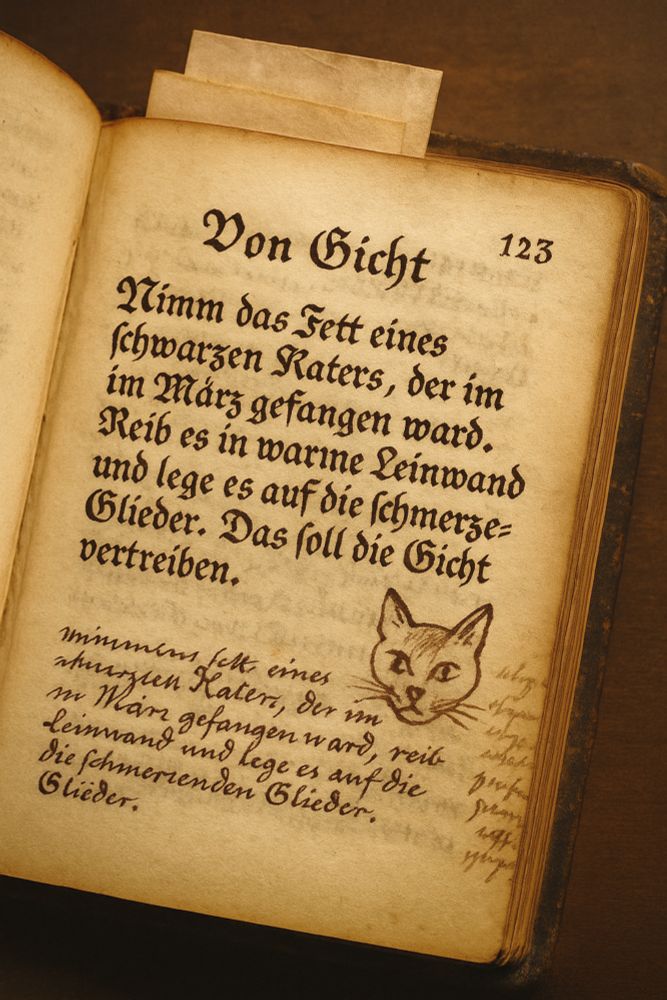 Von Gicht
123
Nimm das Fett eines
schwarzen Katers, der im
im März gefangen ward.
Reib es in warme Leinwand
und lege es auf die schmerze=
Glieder. Das soll die Gicht
vertreiben.
eines
Katers, der im
März gefangen ward, reib
Leinwand und lege es auf die
die schmerzenden Glieder.
Gliëder.